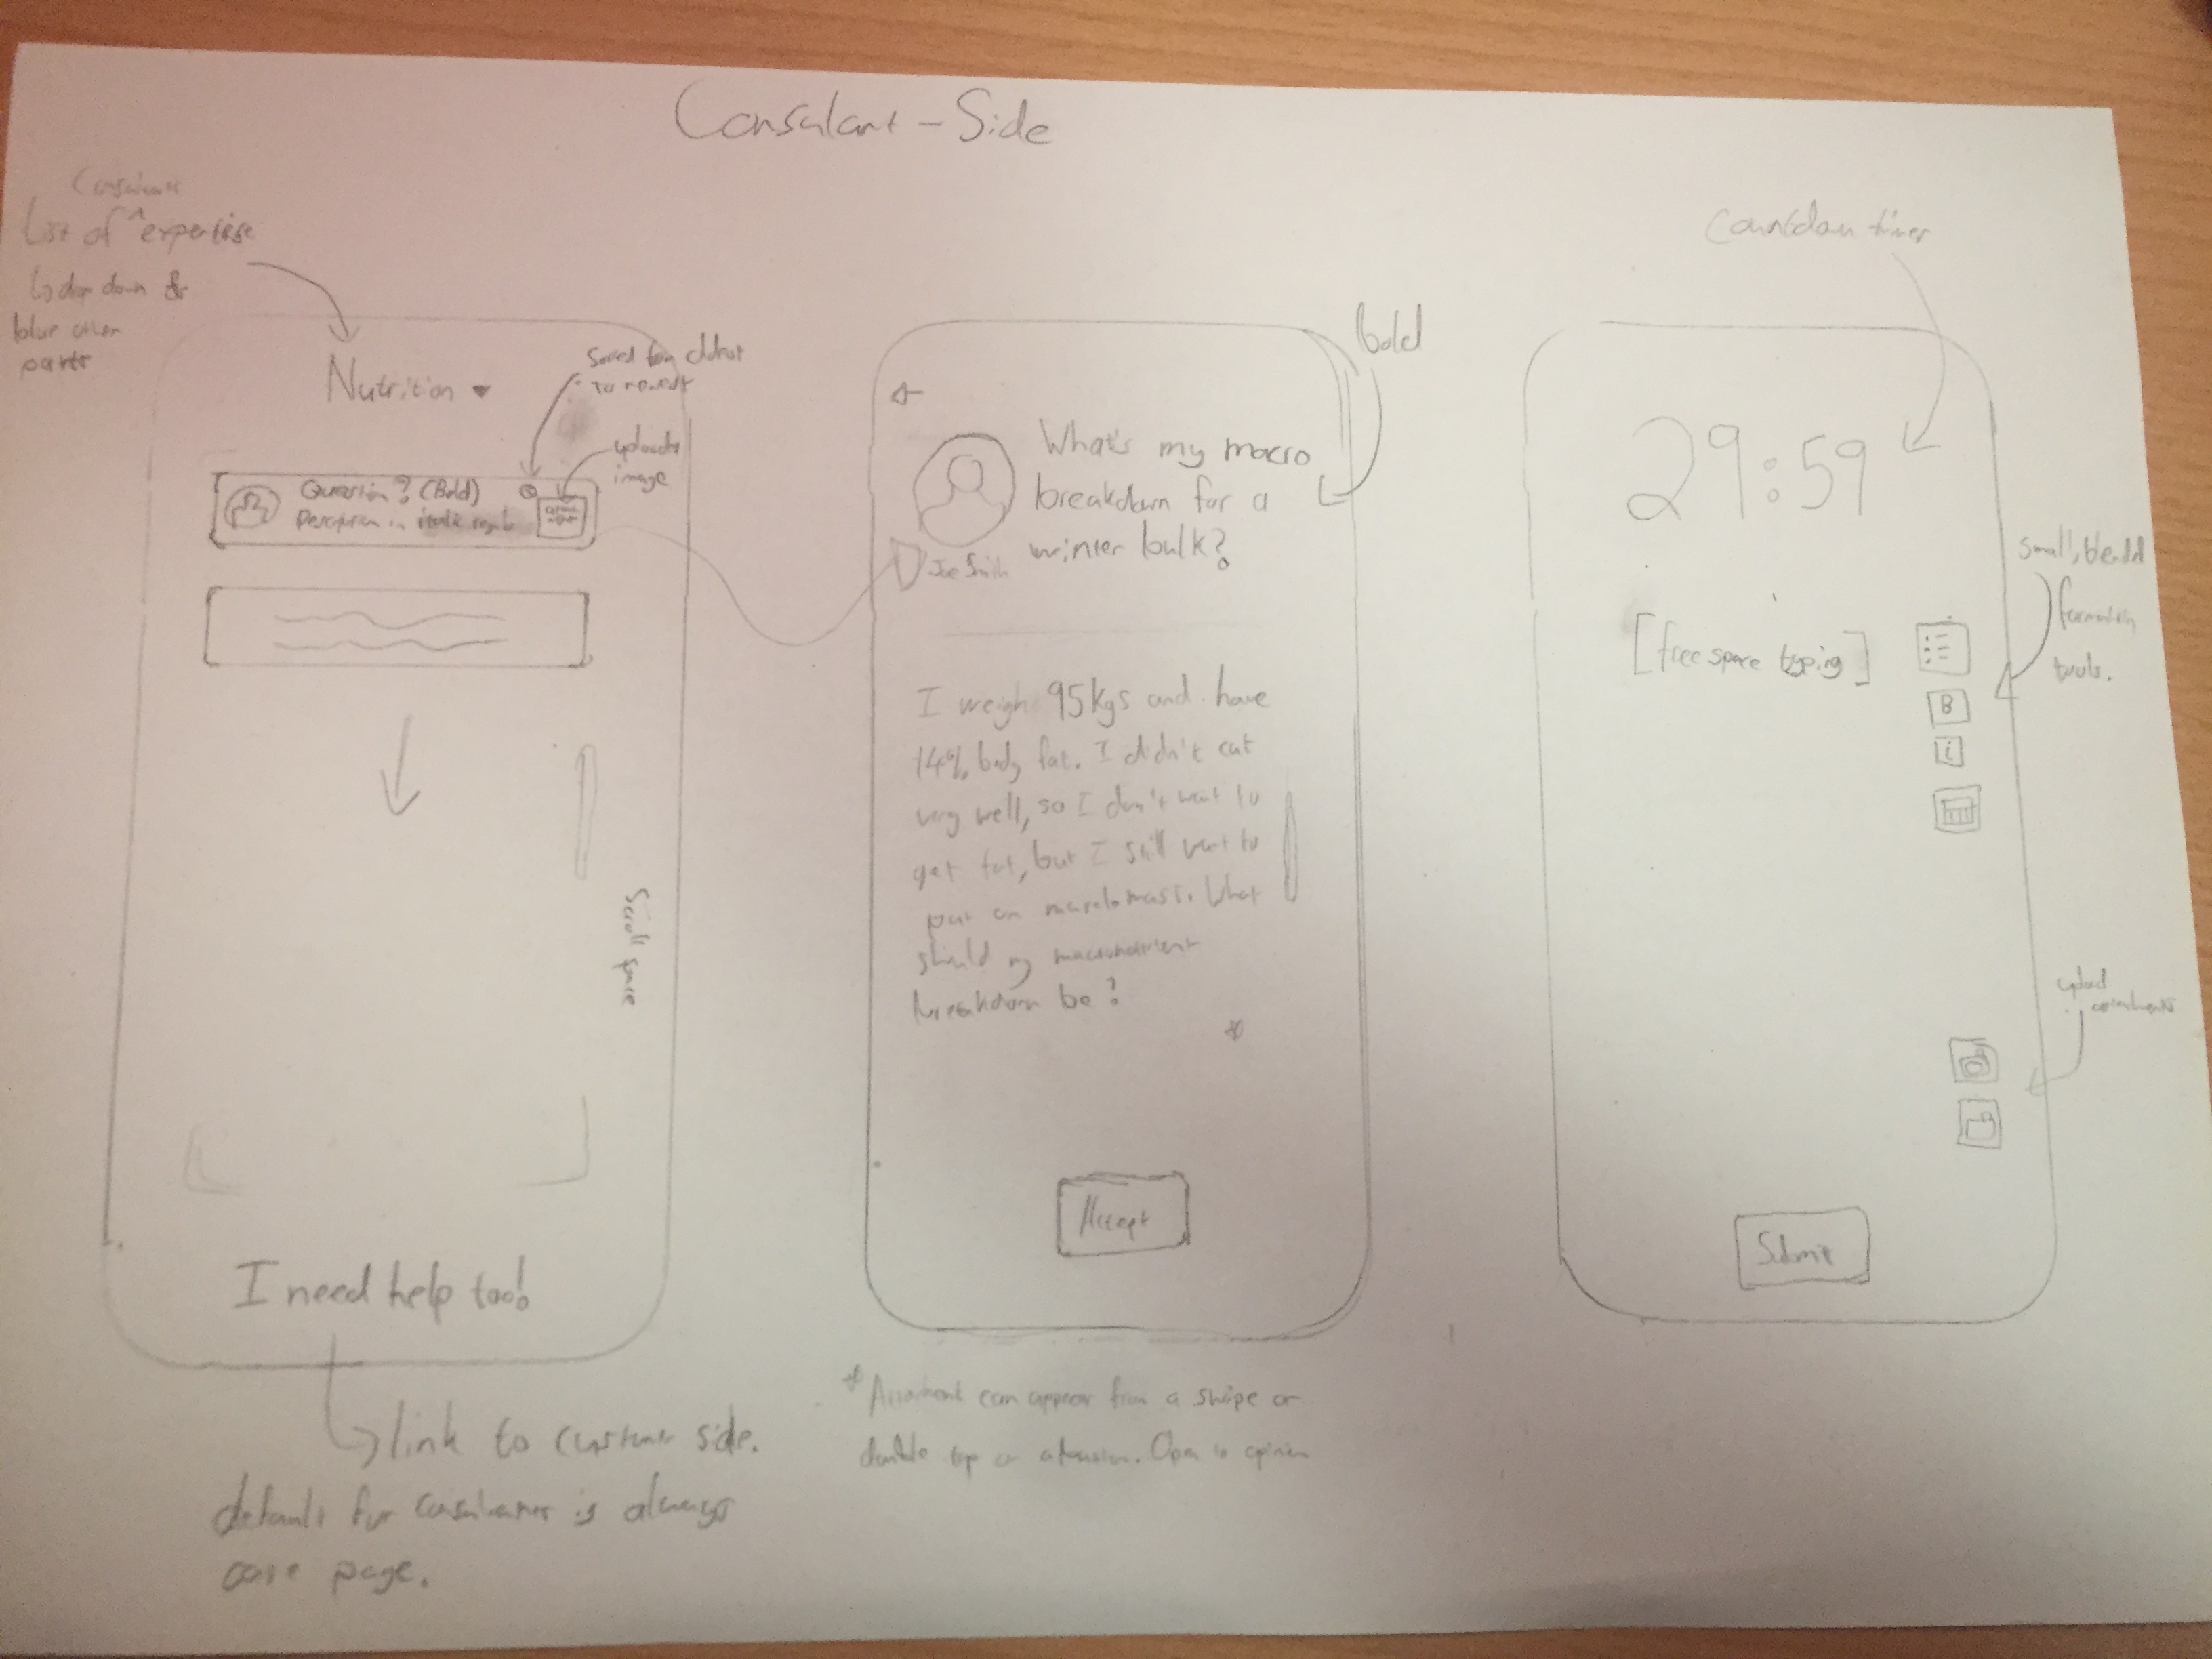 Consulant - Side
Consultant
List of ^ expertise
↳ drop down &
blur other
parts
Nutrition ▾
Sorted from oldest
to newest
uploaded
image
Question? (Bold)
Description in italic
Scroll space
I need help too!
↳ link to customer side.
default for consultant is always
case page.
Bold
What's my macro
breakdown for a
winter bulk?
Joe Smith
I weigh 95kgs and have
14% body fat. I didn't eat
very well, so I don't want to
get fat, but I still want to
put on muscle mass. What
should my macronutrient
breakdown be?
*
Accept
* Attachment can appear from a swipe or
double tap or Open to opinion
Countdown timer
29:59
[free space typing]
small, blended
formatting
tools.
B
i
upload
attachments
Submit